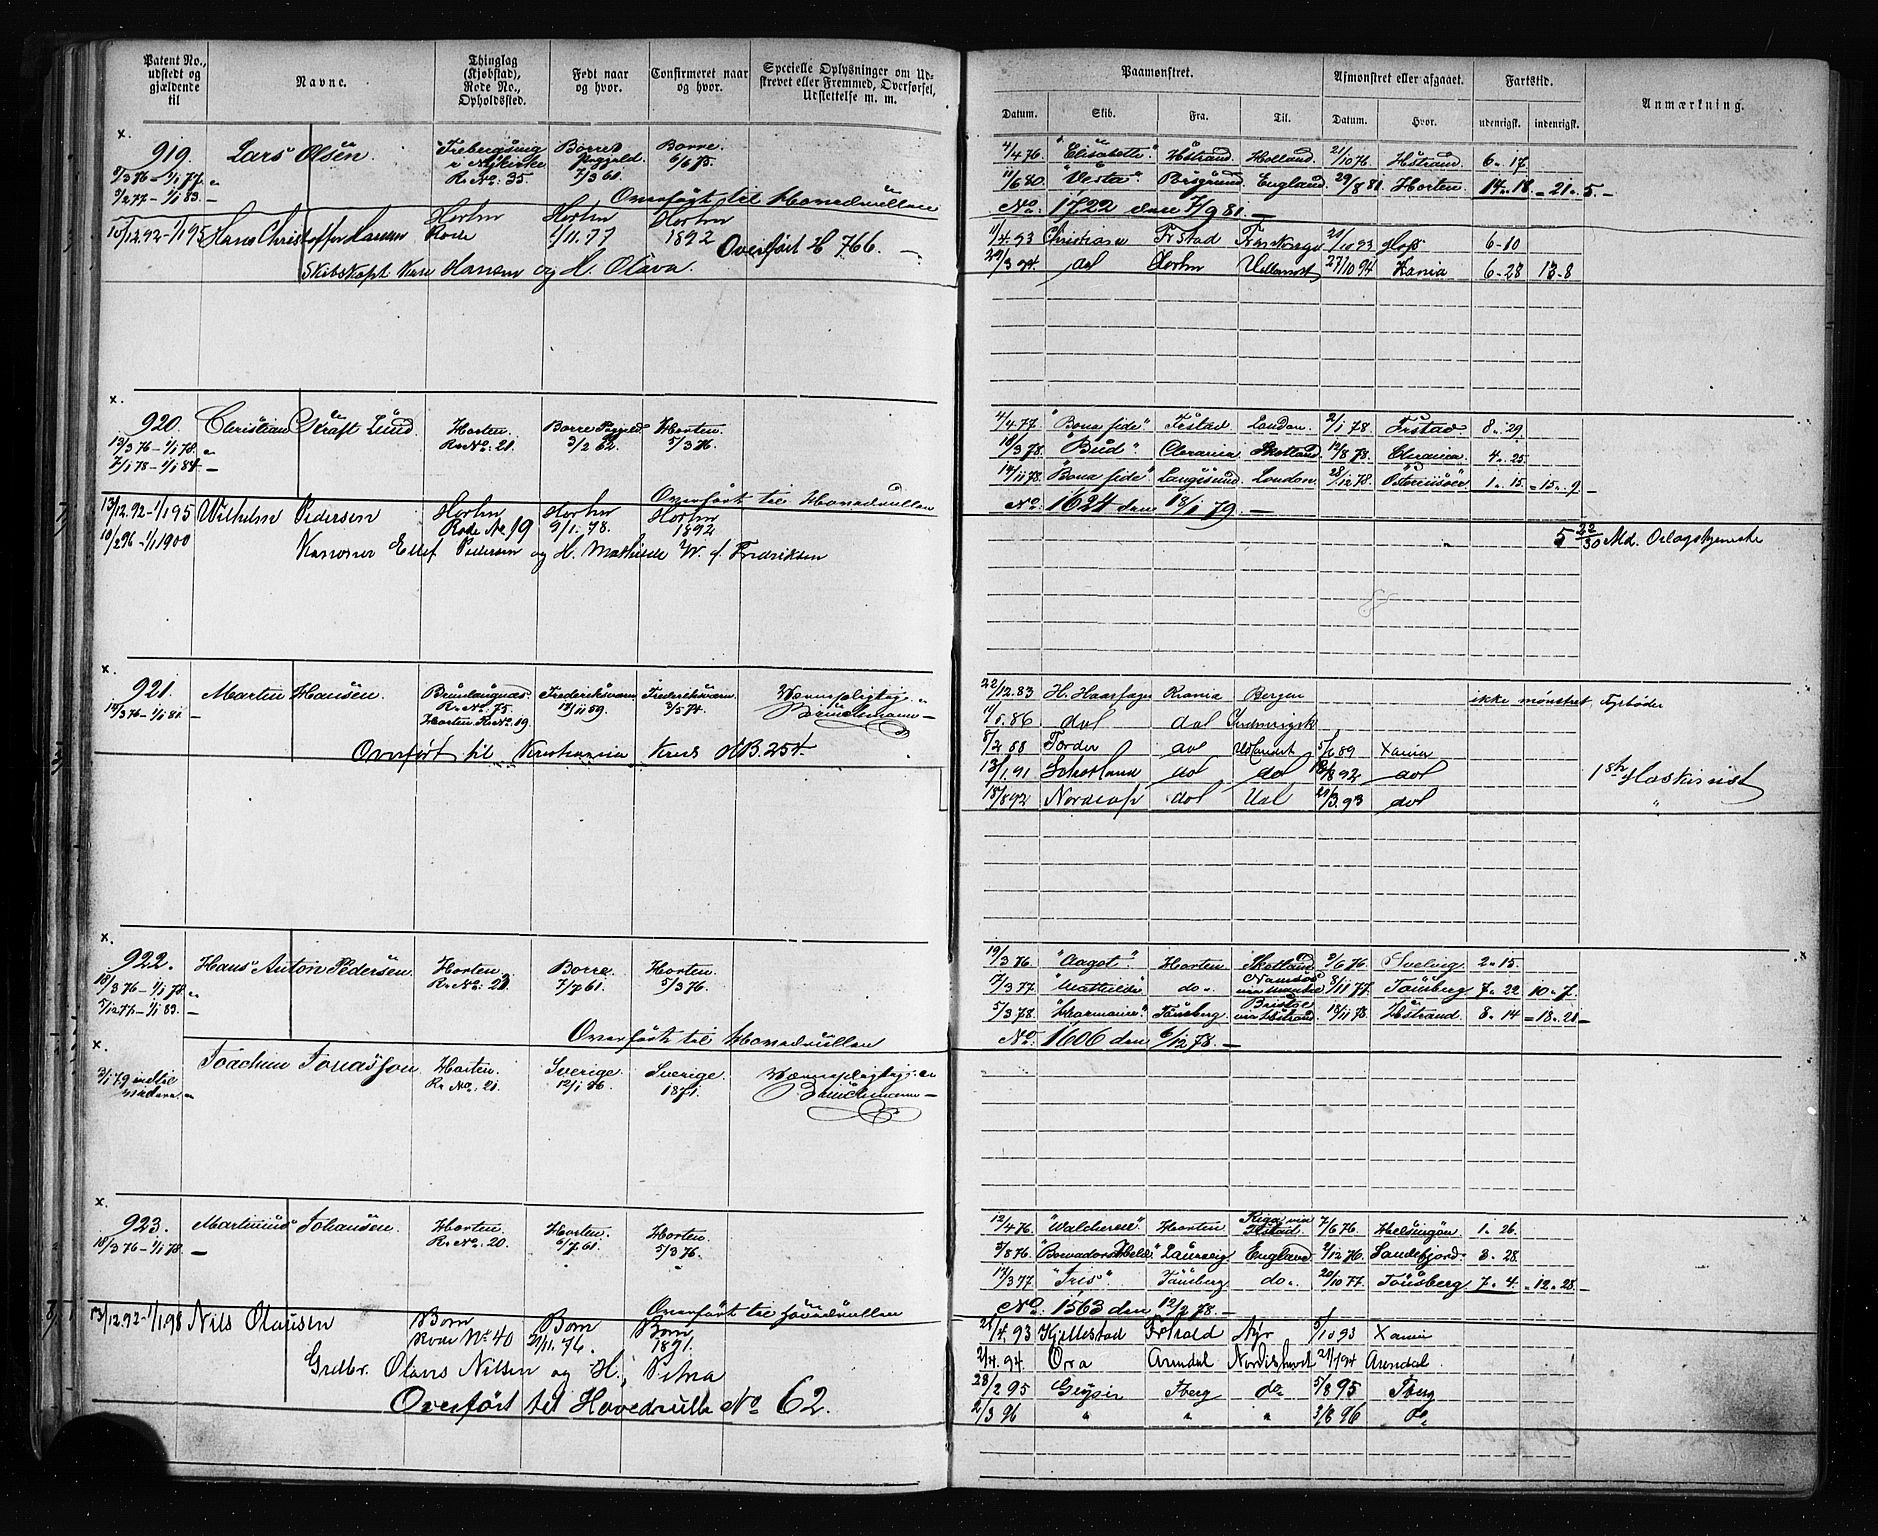 Patent No., udstedt og gjældende til
Navne.
Thinglag (Kjøbstad), Rode No., Opholdssted.
Født naar og hvor.
Confirmeret naar og hvor.
Specielle Oplysninger om Udskrevet eller Fremmed, Overførsel, Udslettelse m. m.
919. Lars Olsen i Nykirke R. No: 35. Borre 7/3 61 Borre 6/6 75
5/3 76 - 1/1 77
5/2 77 - 1/1 83.
Overført til Hovedrullen
10/12 92 - 1/1 95 Hans Christoffer Hansen Horten Rode Horten 1/11.77 Horten 1892 Overført H 766.
Hansen og H. Olava.
920. Christian Kraft Lund Horten. R. No: 21. Borre 3/2 62. Horten. 5/3 76
13/3 76 - 1/1 78.
7/1 78 - 1/1 84
Overført til Hovedrullen
13/12.92 - 1/1 95 Wilhelm Pedersen Horten Rode No 19 Horten 9/1.78. Horten 1892
10/2 96 - 1/1 1900 Kanoner Ellef Pedersen og H. Mathilde W. f. Fredriksen
921. Martin Hansen. R. No: 75. Horten R. No: 19. Frederiksværn 18/11 59. Frederiksværn. 3/5 74. Værnepligtig
14/3 76 - 1/1 81.
Overført til Kristiania Kreds HB. 254.
922. Hans Anton Pedersen Horten. R. No: 21 Borre. 7/7 61. Horten. 5/3 76.
18/3 76 - 1/1 78
7/12 77 - 1/1 83.
Overført til Hovedrullen
Joachim Jonasson Horten. R. No: 21. Sverige. 12/1 76. Sverige. 1871. Værnepligtig
3/1 79 indtil videre
923. Martinius Johansen. Horten. R. No: 20. Horten. 6/7 61. Horten. 5/3 76.
18/3 76 - 1/1 78
Overført til Hovedrullen
13/12.92 - 1/1 98 Nils Olausen Borre Rode No 40 Borre 21/11.76. Borre 1891.
Grdbr. Olaus Nilsen og H. Petra
Overført til Hovedrulle No 62.
Paamønstret.
Afmønstret eller afgaaet.
Fartstid.
Anmærkning.
Datum. Skib. Fra. Til. Datum. Hvor. udenrigsk. indenrigsk.
4/4 76 "Elisabeth". Hstrand. Holland. 21/10 76. Hstrand. 6 - 17
11/6 80. "Vesta". England. 29/8 81 Horten 14 - 18 - 21 - 5. -
No: 1722 den 7/9 81. -
11/4 93 Christiane Frstad 21/10 93 6-10
29/3 94. do Horten 27/10 94 Xania 6-28 13-8
4/4 77. "Bona fide" Frstad London. 2/1 78. Frstad 8 - 29.
18/3 78. "Bud". Skotland 12/8 78. 4 - 25.
14/11 78. "Bona fide" Langesund. London 28/12 78. 1 - 15 - 15 - 9. -
No: 1624 den 18/1 79. -
5 22/30 Md. Orlogstjeneste
22/12.83 H. Haarfager Krania Bergen ikke mønstret, Fyrbøder
11/5 86 do do Indenrigsk
8/2 88 Torden do Udlandet 5/6 89 Xania
13/1.91 Sokotland do do 13/8 92 do 1ste Maskinist
18/8 92 Nordcap do Udl 21/3.93 do
19/3 76 "Aagot". Horten Skotland 2/6 76. Svelvig. 2 - 15.
7/3 77. "Mathilde" do. 3/11 77. Tønsberg 7 - 22 10 - 7.
5/3 78. Tønsberg 18/11 78 Hstrand. 8 - 14 - 18 - 21 -
No: 1606 den 6/12 78. -
12/4 76. Horten Riga via 7/6 76. Helsingør. 1 - 26.
5/8 76. Laurvig England 9/12 76. Sandefjord. 3 - 28.
17/3 77. "Iris" Tønsberg do. 20/10 77. Tønsberg 7 - 4. - 12 - 28. -
No: 1563 den 12/2 78. -
21/4.93 Kjellestad 5/10 93 Xania
2/4.94. Ora Arendal Arendal.
28/2 95 Geysir Tberg do 5/8 95 Tberg
2/3 96 " " " 3/8 96 do